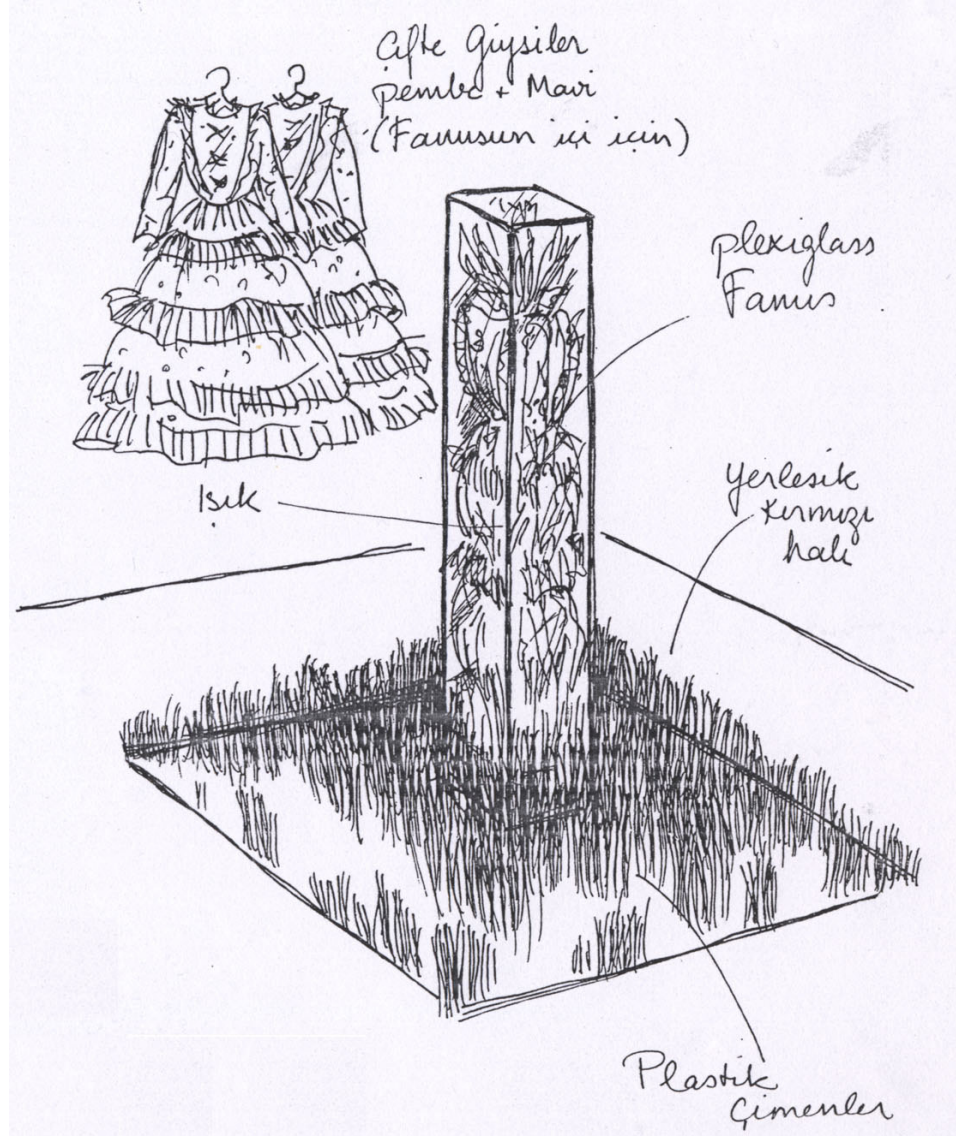 Çifte Giysiler
pembe + Mavi
(Fanusun içi için)
CAM
plexiglass
Fanus
Işık
Yerleşik
Kırmızı
halı
Plastik
Çimenler